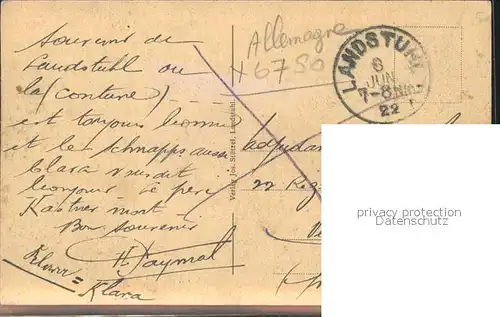 Souvenir de
Landstuhl ou
la (couture) ....
est toujours bonne
et le schnapps aussi
Clara vous dit
bonjour le père
Kastner mort
Bon souvenir
Klara
Allemagne
+ 6750
LANDSTUHL
6
JUN
7-8 NM.
22
Verlag Jos. Stützel, Landstuhl.
adjudan
22
privacy protection
Datenschutz